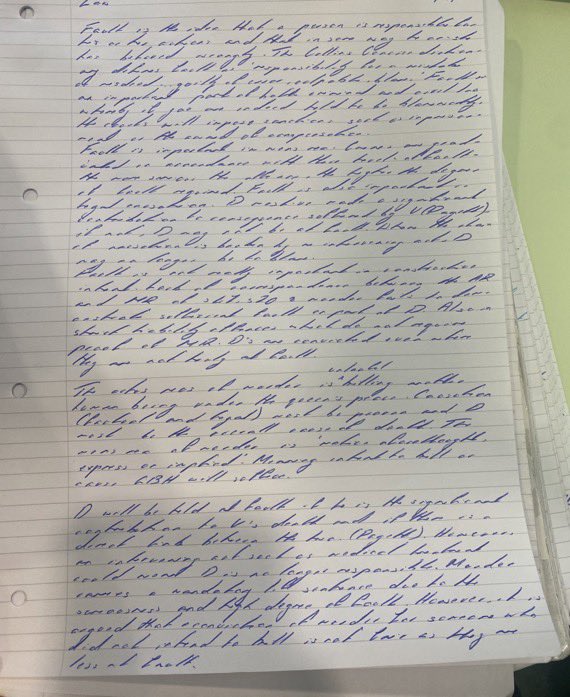 Law
Fault is the idea that a person is responsible for
his or her actions and that in some way he or she
has behaved wrongly. The Collins Concise diction-
ary defines fault as 'responsibility for a mistake
or misdeed, guilty of error, culpable, blame.' Fault is
an important part of both criminal and civil law
whereby if you are indeed held to be blameworthy
the courts will impose sanctions such as imprison-
ment or the award of compensation.
Fault is important in mens rea. Crimes are grade
in accordance with their level of fault.
The more serious the offence the higher the degree
of fault required. Fault is also important in
legal causation. D must have made a significant
contribution to consequence suffered by V (Pagett)
if not D may not be at fault. When the chain
of causation is broken by an intervening act D
may no longer be to blame.
Fault is not really important in constructive
intent, lack of correspondence between the AR
and MR of s47, s20 & murder fails to dem-
onstrate sufficient fault on part of D. Also in
strict liability offences which do not require
proof of MR. D's are convicted even where
they are not truly at fault.
The actus reus of murder is unlawful killing another
human being under the queen's peace. Causation
(factual and legal) must be proven and D
must be the overall cause of death. The
mens rea of murder is 'malice aforethought,
express or implied'. Meaning intent to kill or
cause GBH will suffice.
D will be held at fault if he is the significant
contribution to V's death and if there is a
direct link between the two. (Pagett). However,
an intervening act such as medical treatment
could mean D is no longer responsible. Murder
carries a mandatory life sentence due to the
seriousness and high degree of fault. However, it is
argued that a conviction of murder for someone who
did not intend to kill is not fair as they are
less at fault.